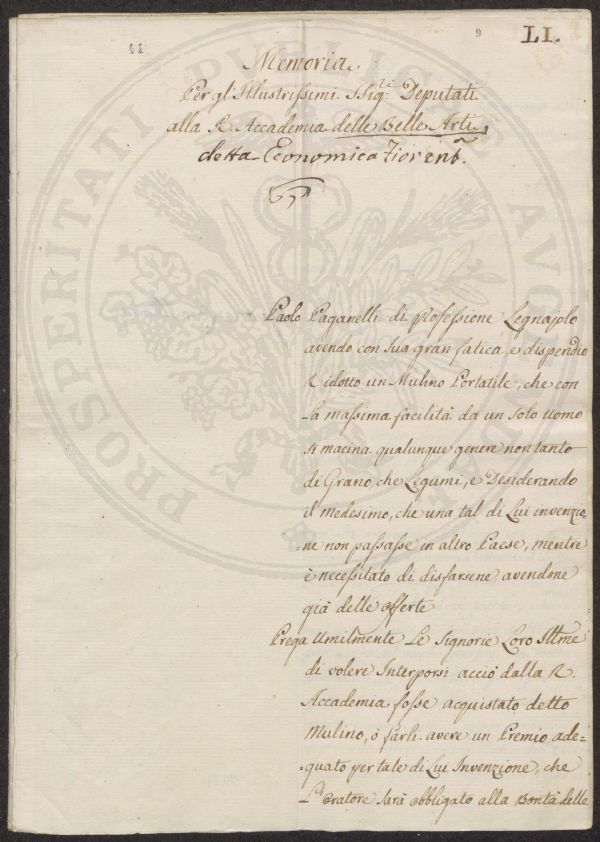 41
9
LI.
Memoria
Per gl'Illustrissimi SSig:ri Deputati
alla R. Accademia delle Belle Arti,
detta Economica Fiorent.
Paolo Paganelli di Professione Legnajolo
avendo con sua gran fatica, e dispendio
ridotto un Mulino Portatile, che con
la massima facilità da un solo uomo
si macina qualunque genere non tanto
di Grano che Legumi, e Desiderando
il medesimo, che una tal di Lui invenzio
=ne non passasse in altro Paese, mentre
è necessitato di disfarsene avendone
già delle offerte
Prega umilmente Le Signorie Loro Illme
di volere Interporsi acciò dalla R.
Accademia fosse acquistato detto
Mulino, ò farli avere un Premio ade=
=quato per tale di Lui Invenzione, che
l'Oratore sarà obbligato alla Bontà delle
PROSPERITATI PUBLICAE AUGENDAE